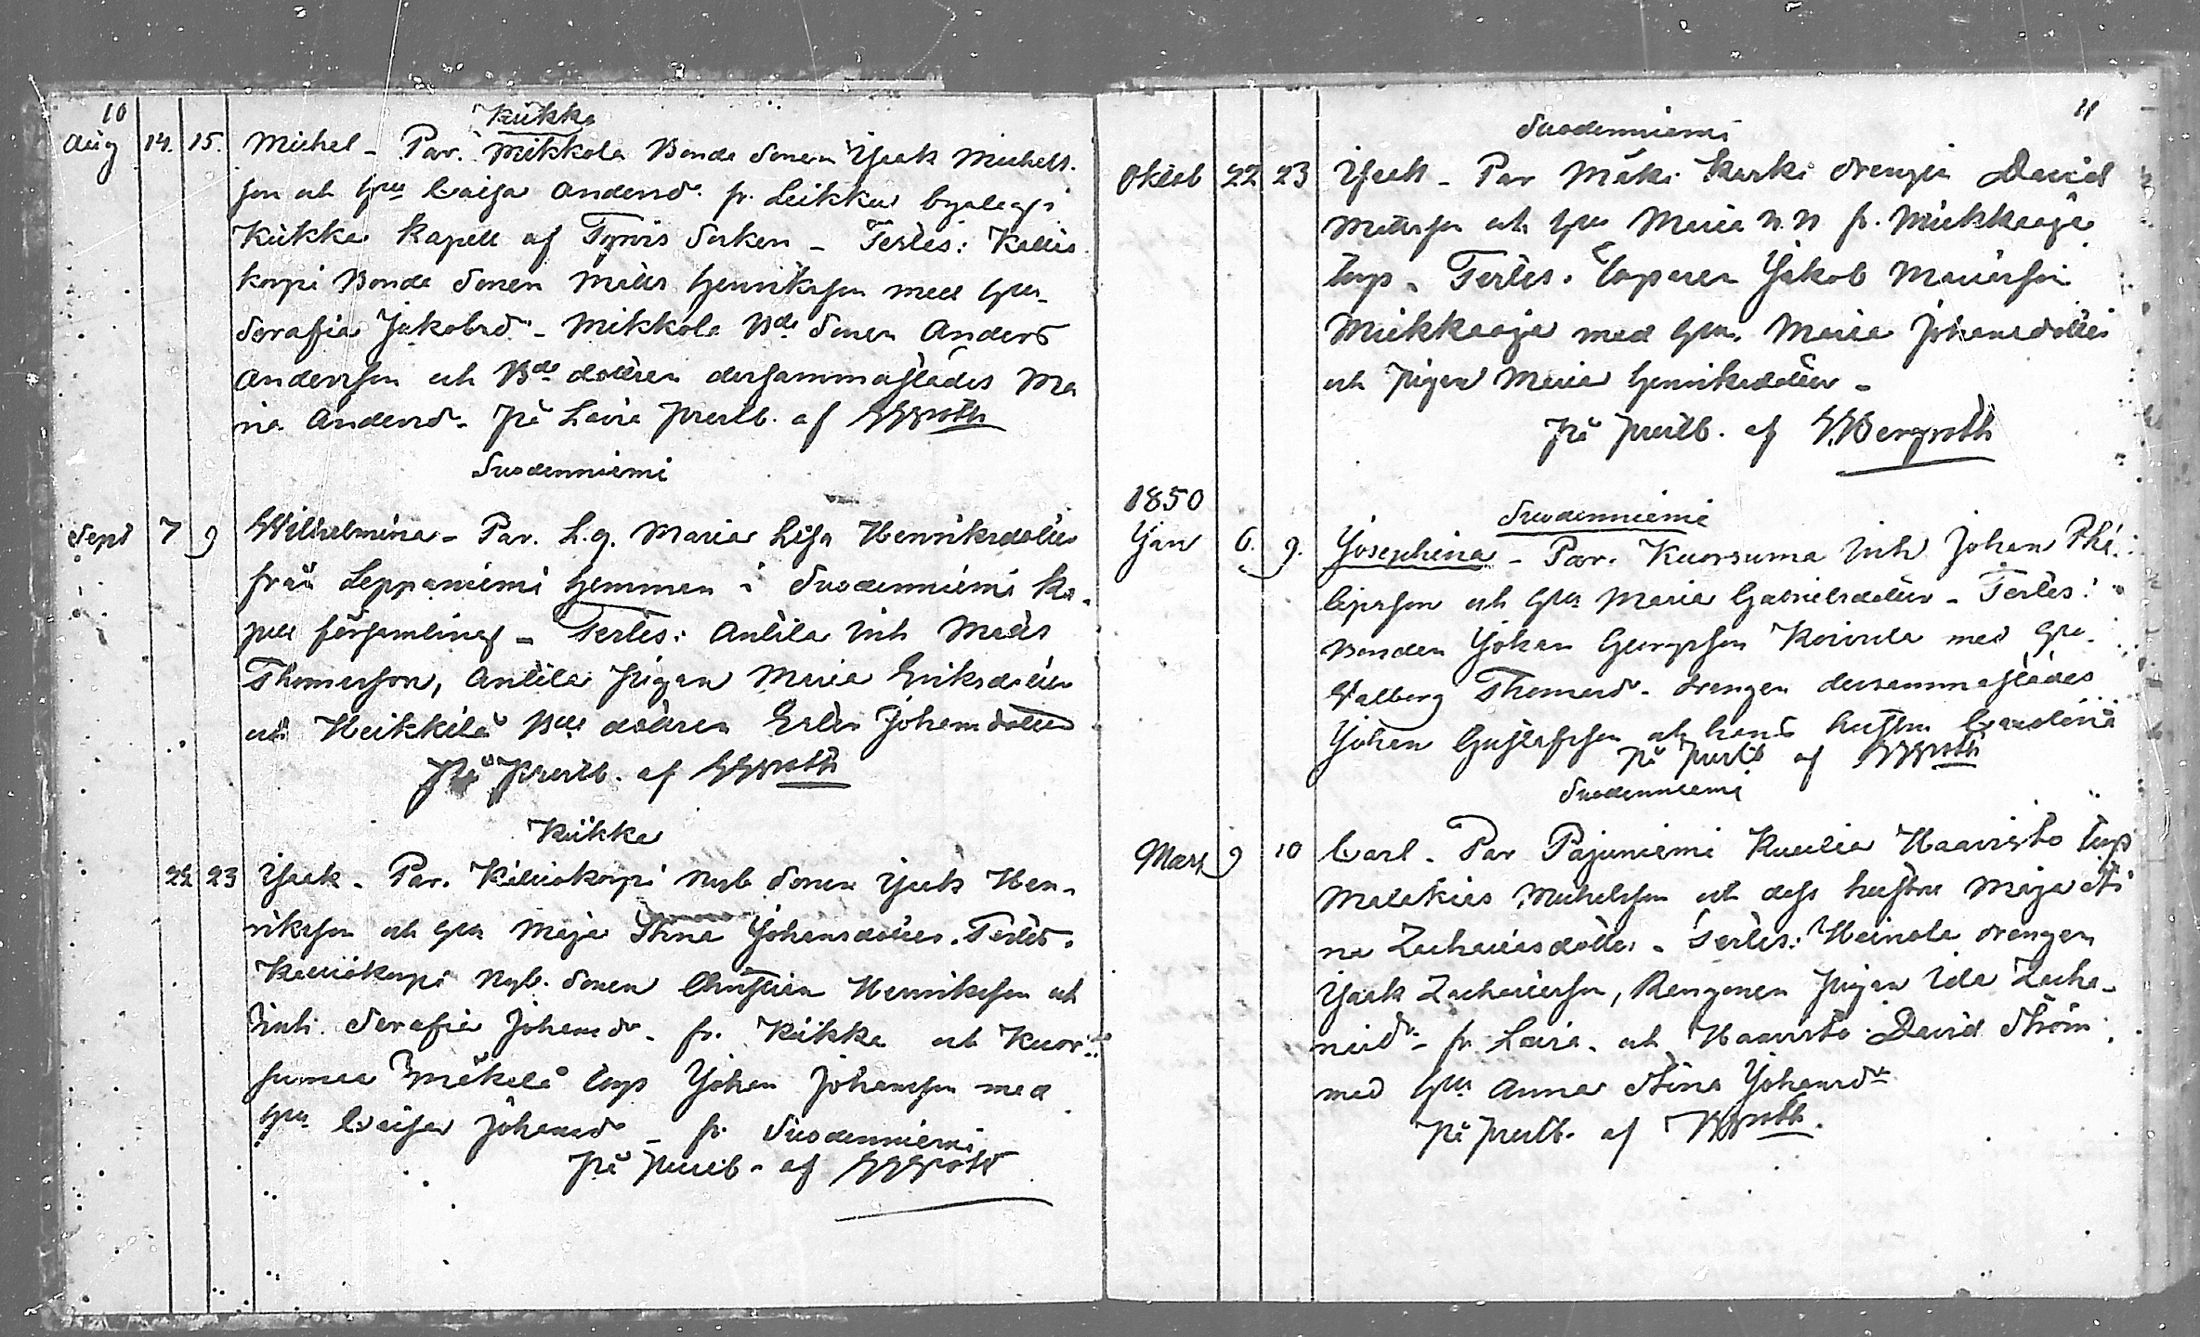 10
Kiikka
Aug 14. 15. Michel - Par. Mikkola Bonde Sonen Isak Michels
son och hu Caisa Andersdr fr. Leikku byalag i
Kiikka Kapell af Tyrvis Socken - Testes: Kallio
korpi Bonde Sonen Matts Henriksson med hu
Serafia Jakobsdr - Mikkola Bde Sonen Anders
Andersson och Bde dottren dersammastädes Ma
ria Andersdr. på Lavia prestb. af
Suodenniemi
Sept 7 9 Wilhelmina - Par. L.q. Maria Lisa Henriksdotter
från Leppäniemi hemman i Suodenniemi Ka-
pell församling - Testes: Anttila Inh Matts
Thomasson, Anttila Pigan Maria Eriksdotter
och Heikkilä Bde dottren Ester Johansdotter
på prestb. af
Kiikka
22 23 Isak - Par. Kalliokorpi Nyb. Sonen Isak Hen-
riksson och hu Maja Stina Johansdotter. Testes.
Kalliokorpi Nyb. Sonen Christian Henriksson och
Inh. Serafia Johansdr - fr. Kiikka och Kuor-
sumaa Mäkelä torp Johan Johansson med
hu Caisa Johansdr - fr Suodenniemi
på prestb. af
11
Suodenniemi
Oktob 22 23 Isak - Par Mäki Karki drengen David
Mattsson och hu Maria N.N fr. Miekkaoja
torp. Testes. Torparen Jakob Mattsson
Miekkaoja med hu. Maria Johansdotter
och Pigan Maria Henriksdotter -
på prestb. af Bergroth
1850
Suodenniemi
Jan 6. 9. Josephina - Par. Kuorsuma Inh Johan Phi-
lipsson och hu Maria Gabrielsdotter - Testes:
Bonden Johan Georgsson Koivula med hu
Valborg Thomasdr. drengen dersammastädes
Johan Gustafsson och hans hustru Carolina
på prestb af
Suodenniemi
Mars 9 10 Carl. Par Pajuniemi Haavisto torp
Malakias Michelsson och dess hustru Maja Sti
na Zachariasdotter - Testes: Heinola drengen
Isak Zachariasson, Rengonen Pigan Ida Zacha-
riasdr - fr Lavia. och Haavisto David Ström
med hu Anna Stina Johansdr
på prestb. af